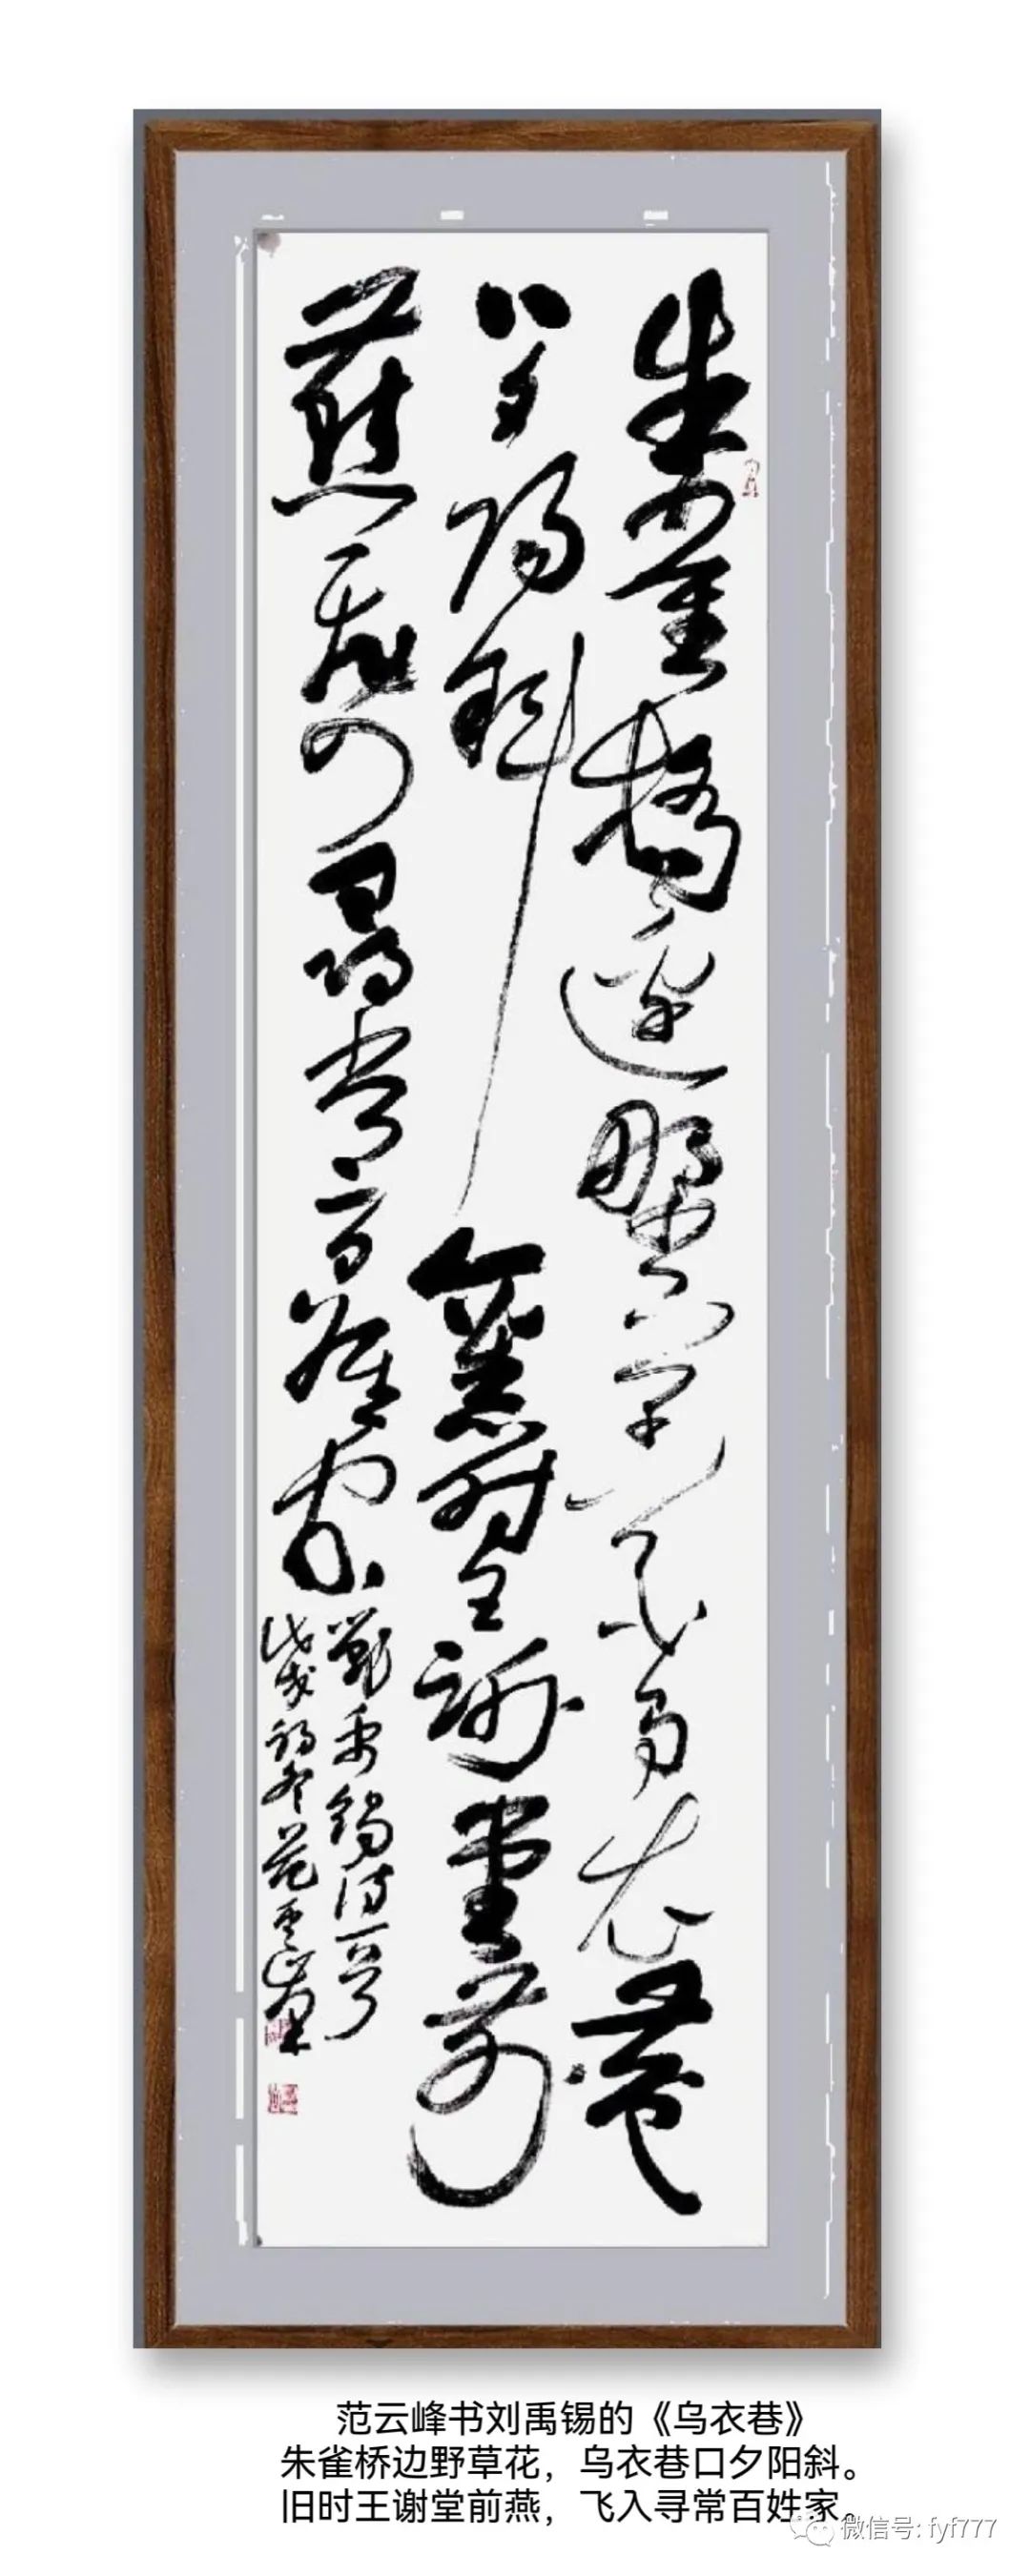 朱雀橋邊野草花烏衣巷
口夕陽斜舊時王謝堂前
燕飛入尋常百姓家
劉禹錫詩一首
戊戌初冬范雲峰
范云峰书刘禹锡的《乌衣巷》
朱雀桥边野草花，乌衣巷口夕阳斜。
旧时王谢堂前燕，飞入寻常百姓家。
微信号: fyf777